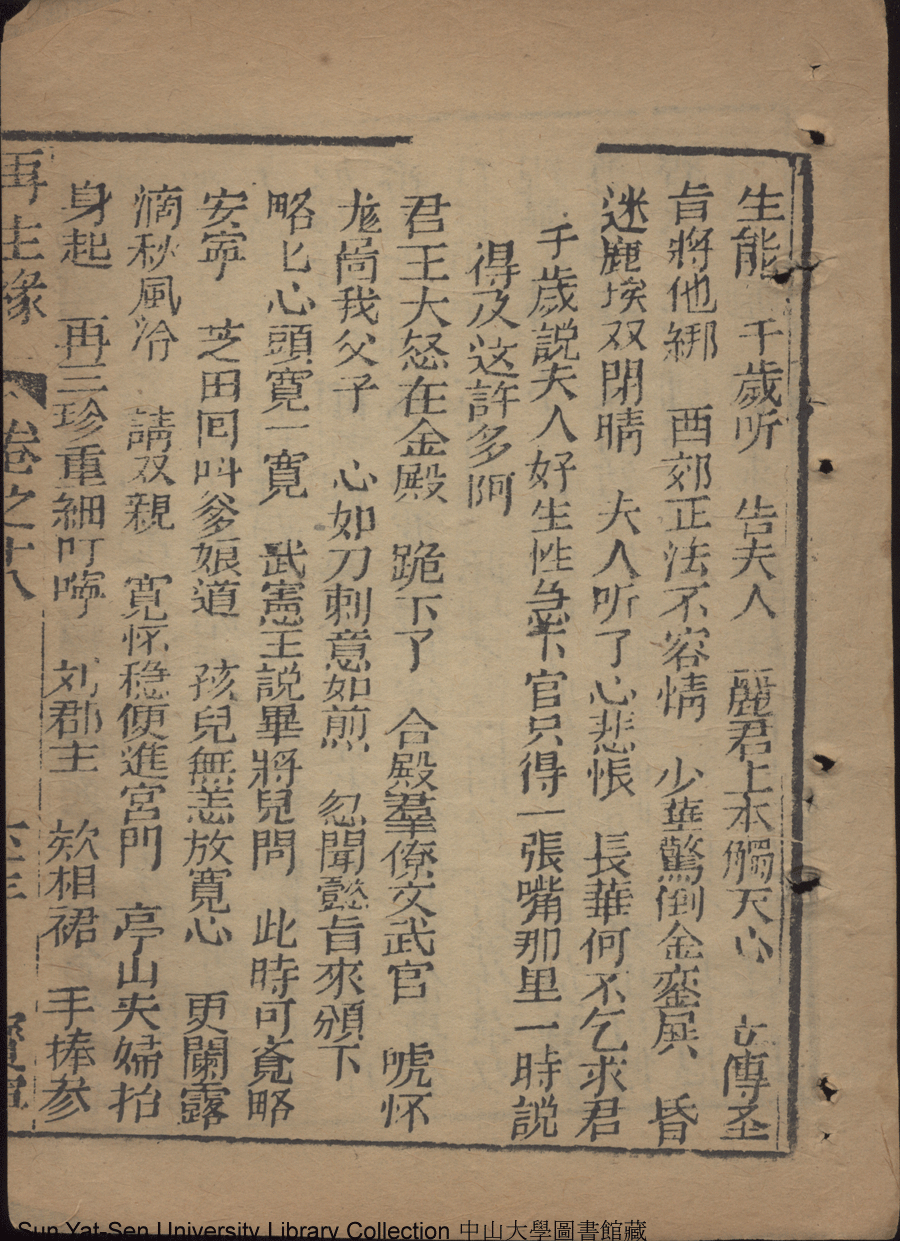 生能 千歲听 告夫人 麗君上本觸天心 立傳圣
旨將他綁 西郊正法不容情 少華驚倒金鑾展 昏
迷塵埃双閉晴 夫人听了心悲悵 長華何不乞求君
千歲説夫人好生性急下官只得一張嘴那里一時説
得及这許多阿
君王大怒在金殿 跪下了 合殿羣僚文武官 唬怀
尨啇我父子 心如刀刺意如煎 忽聞懿旨來頒下
略匕心頭寛一寛 武憲王説畢將兒問 此時可竟略
安寜 芝田囘呌爹娘道 孩兒無恙放寛心 更闌露
滴秋風冷 請双親 寛怀稳便進宮門 亭山夫婦抬
身起 再三珍重細叮嚀 刘郡主 欸相裙 手捧参
再生緣 卷之十八
Sun Yat-Sen University Library Collection 中山大學圖書館藏